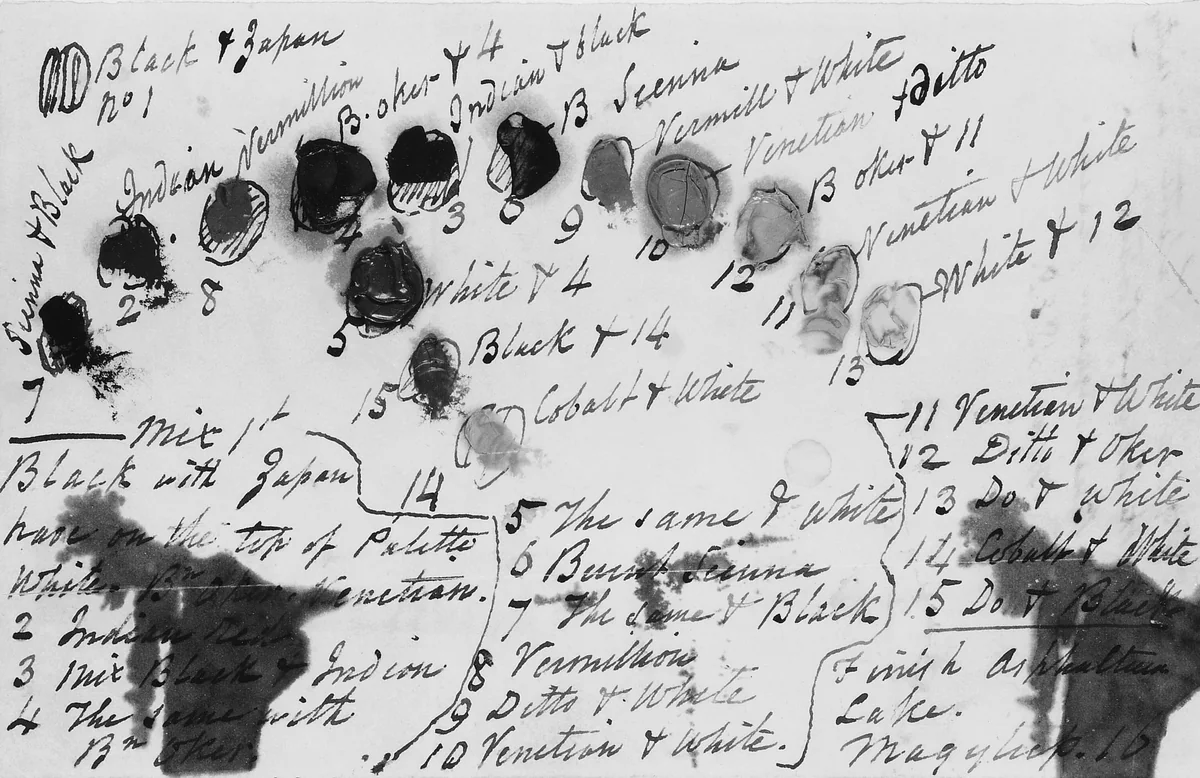 Black & Japan
No 1
Sienna & Black
7
Indian
2
Vermillion
8
B. oker & 4
4
Indian & black
3
B Sienna
6
Vermill & White
9
Venetian & Ditto
10
B oker & 11
12
Venetian & White
11
White & 12
13
White & 4
5
Black & 14
15
Cobalt & White
14
Mix 1st
Black with Japan
have on the top of Palette
White. Bn Oker. Venetian.
2 Indian Red
3 Mix Black & Indian
4 The same with
Bn Oker.
5 The same & white
6 Burnt Sienna
7 The same & Black
8 Vermillion
9 Ditto & White
10 Venetian & White.
11 Venetian & White
12 Ditto & Oker
13 Do & white
14 Cobalt & White
15 Do & Black
Finish Asphaltum
Lake.
Magylick.